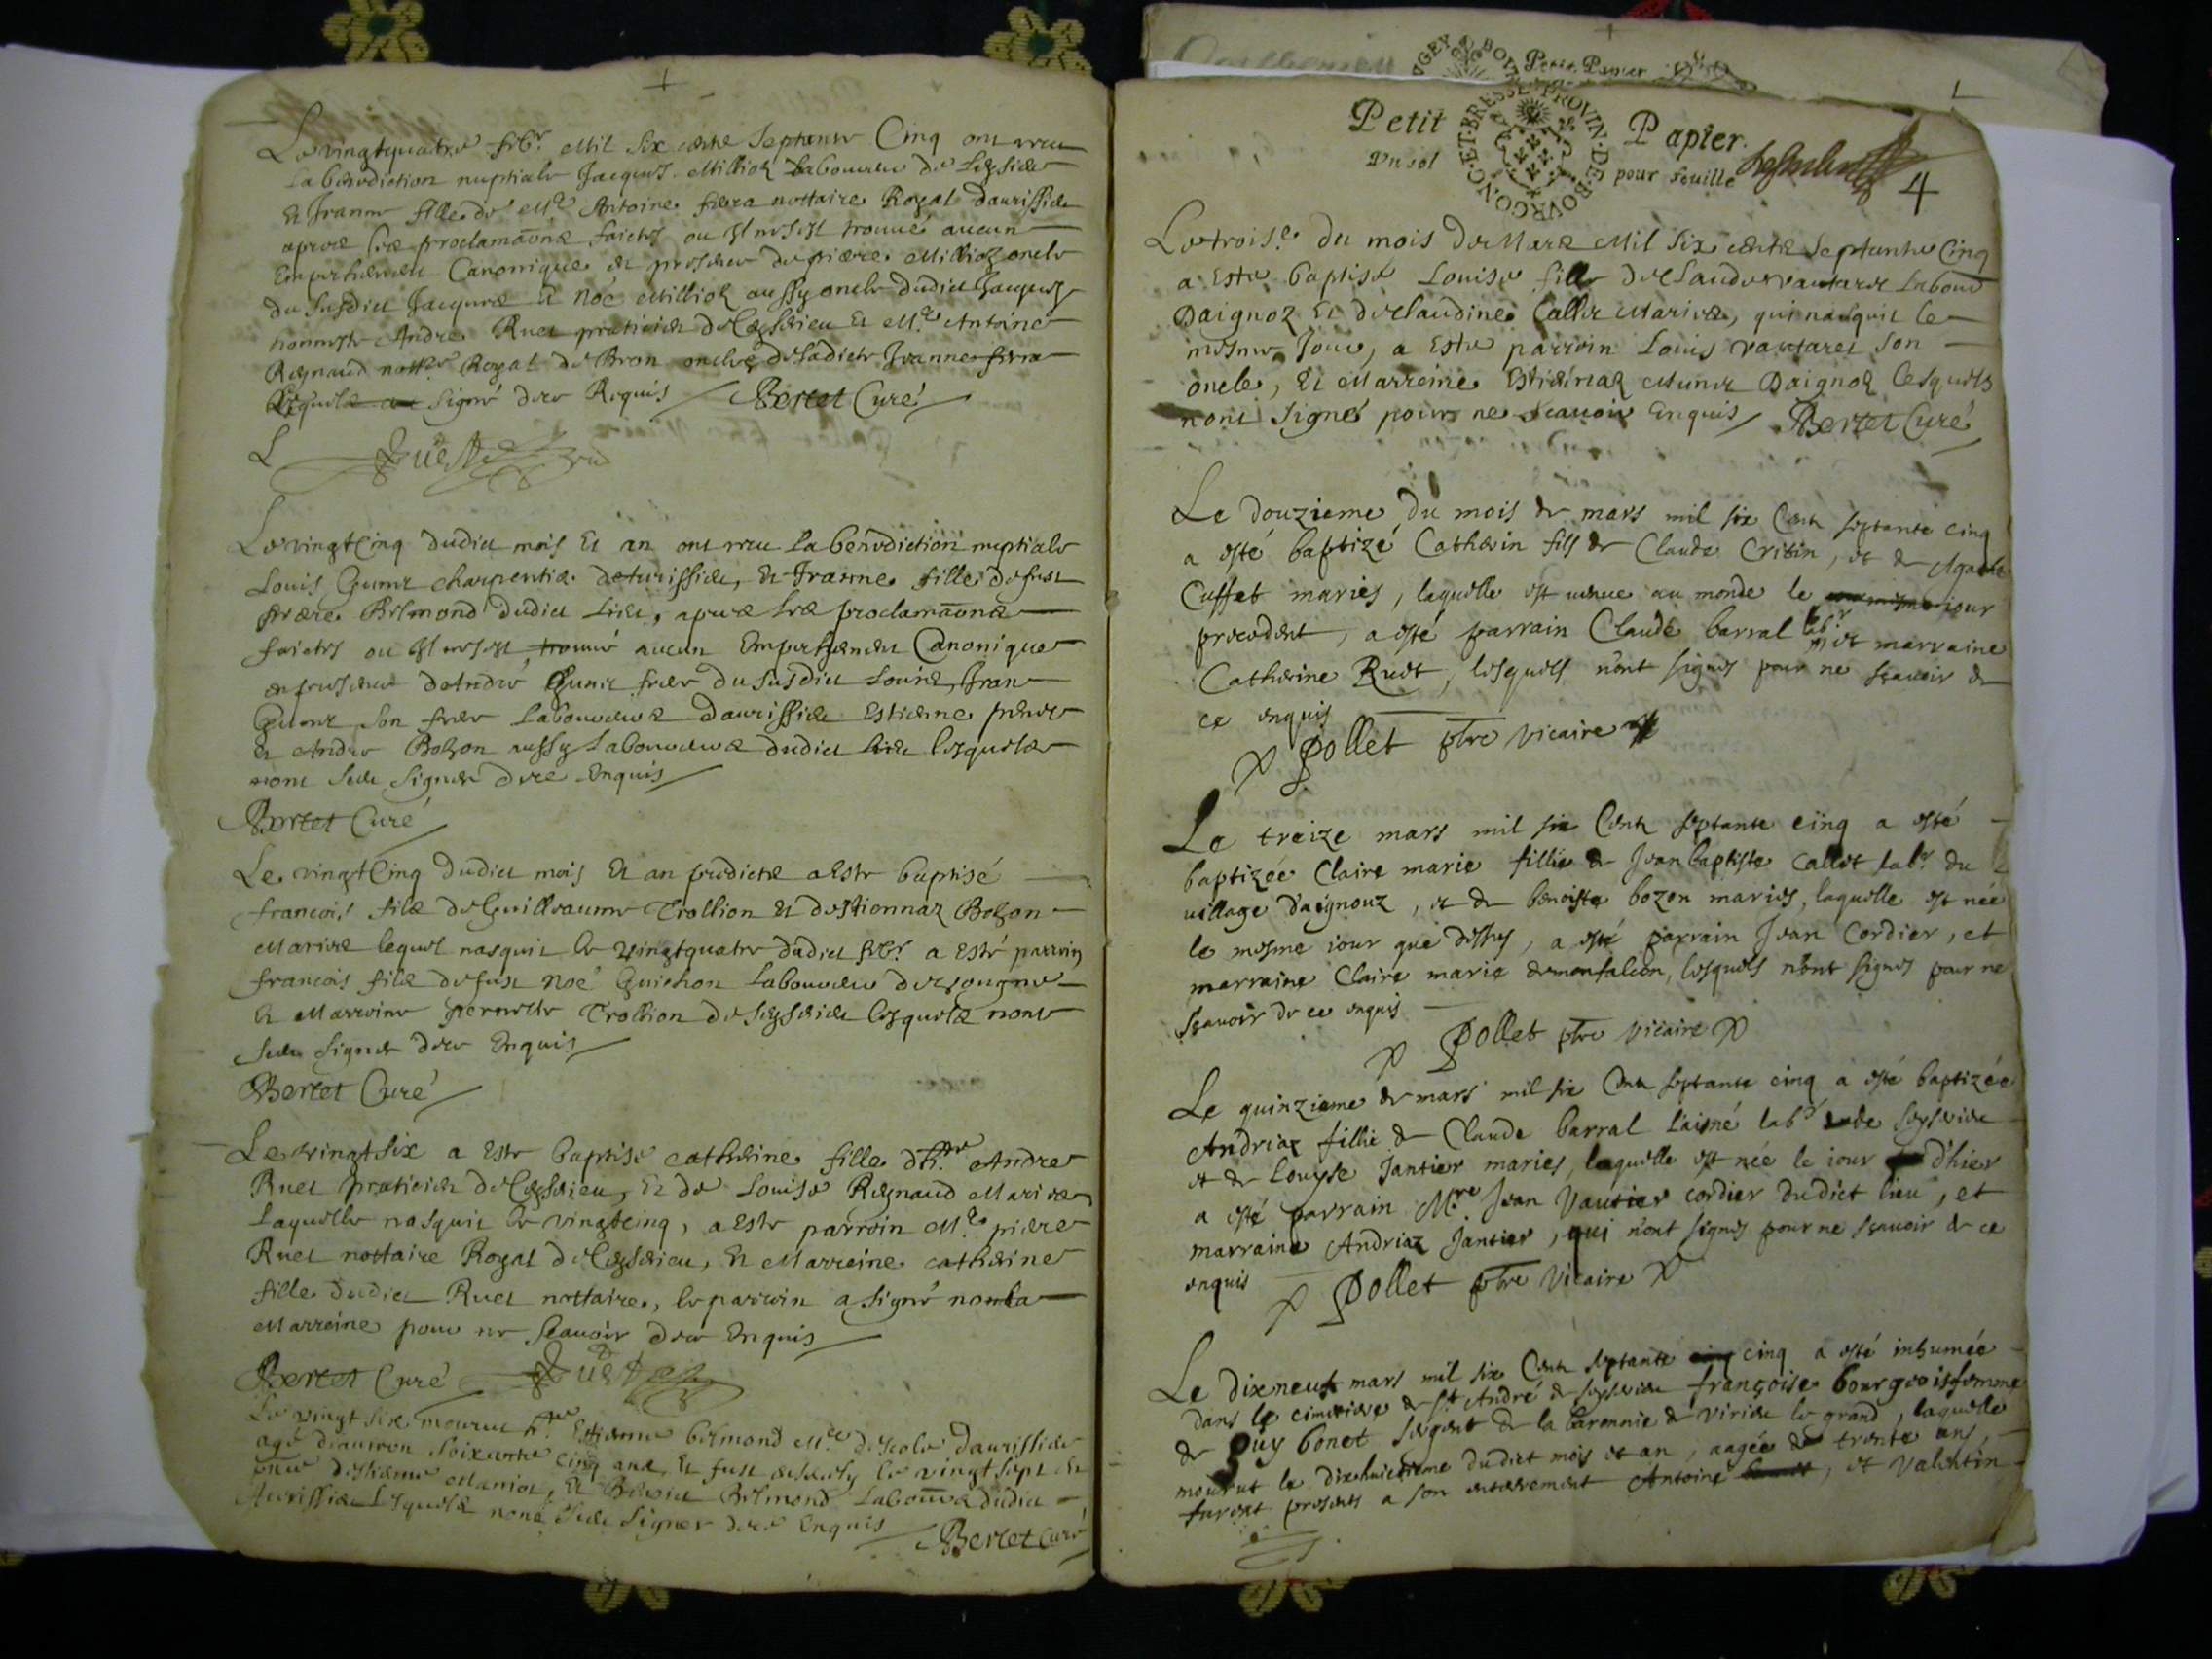 Le vingtquatre febr. Mil six cents septante Cinq ont receu
la benediction nuptiale Jacques Millioz Laboureur de
Et Jeanne fille de Me Antoine notaire Royal daurissieu
apres les proclamaõns faictes ou Il ne sest trouué aucun
Empeschement Canonique en presence de piere Millioz oncle
du susdict Jacques Et Noé Millioz aussy oncle dudict Jacques
honneste Andre Ruet praticien de Ceyserieu Et Me Antoine
Reynaud nottre Royal de Bron oncle de ladicte Jeanne
signé de ce Requis Bertet Curé
L Ruet
Le vingt Cinq dudict mois Et an ont receu la benediction nuptiale
Louis charpentier daurissieu, Et Jeanne fille de fust
piere Belmond dudict lieu, apres les proclamaõns
faictes ou Il ne sest trouué aucun Empeschement Canonique
en presence dAndre frere du susdict Louis,
son frere Laboureurs daurissieu Estienne
Et Andre Bolzon aussy Laboureurs dudict lieu lesquels
nont sceu signer de ce Enquis
Bertet Curé
Le vingt Cinq dudict mois Et an predicts a Esté baptisé
francois fils de Guilleaume Trollion Et destiennaz Bolzon
Mariés lequel nasquit le vingtquatre dudict febr. a Esté parrein
francois fils de fust Noé Guichon Laboureur de
Et Marreine pernette Trollion de lesquels nont
sceu signer de ce Enquis
Bertet Curé
Le vingt six a Esté baptisé catherine fille dh. Andre
Ruet praticien de Ceyserieu, Et de Louise Reynaud Mariés
Laquelle nasquit le vingt cinq, a Esté parrein Me piere
Ruet nottaire Royal de Ceyserieu, Et Marreine catherine
fille dudict Ruet nottaire, le parrein a signé non la
Marreine pour ne scauoir de ce Enquis
Bertet Curé Ruet
Le vingt six mourut h. Estienne belmond Me descole daurissieu
agé denuiron soixante cinq ans, Et fust enseuely le vingt sept en
destienne Maniot, Et Benoict Belmond Laboureurs dudict
Aurissieu Lesquels nont sceu signer de ce Enquis Bertet Curé
Petit Papier.
Vn sol pour feuille
BOVRGONG·ET·BRESSE·PROVIN·DE·
4
Le troise. du mois de Mars Mil six cents septante Cinq
a Esté baptisé Louise fille de Claude vautaret Labour
Daignoz Et de Claudine Callet Mariés, qui nasquit le
mesme Jour, a Esté parroin Louis vautaret son
oncle, Et Marreine Estiennaz Daignoz lesquels
nont signé pour ne scauoir Enquis Bertet Curé
Le douzieme du mois de mars mil six cents septante cinq
a esté baptizé Catherin fils de Claude Critin, et de Agathe
Cuffet mariés, laquelle est uenue au monde le iour
precedent, a esté parrain Claude barral labr. et marraine
Catherine Ruet, lesquels n'ont signés pour ne sçauoir de
ce enquis
Pollet ptre vicaire
Le treize mars mil six cents septante cinq a esté
baptizée Claire marie fillie de Jean baptiste callet labr. du
uillage d'aignouz, et de benoiste bozon mariés, laquelle est née
le mesme iour que dessus, a esté parrain Jean Cordier, et
marraine Claire marie demonfalcon, lesquels n'ont signés pour ne
sçauoir de ce enquis
Pollet ptre vicaire
Le quinzieme de mars mil six cents septante cinq a esté baptizée
Andriaz fillie de Claude barral l'aisné labr. de
et de Louyse Jantier mariés, laquelle est née le iour d'hier
a esté parrain Mre Jean Vautier cordier dudict lieu, et
marraine Andriaz Jantier, qui n'ont signés pour ne sçauoir de ce
enquis Pollet ptre vicaire
Le dixneuf mars mil six cents septante cinq a esté inhumée
dans le cimetiere de st André de françoise bourgeois femme
de Guy bonet sergent de la baronnie de virieu le grand, laquelle
mourut le dixhuictieme dudict mois et an, aagée de trente ans,
furent presents a son enterrement Antoine, et Valentin